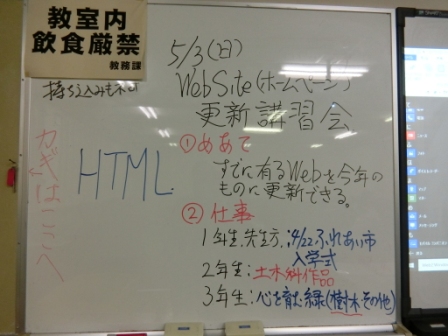 教室内
飲食厳禁
教務課
持ち込みもネ
カギはここへ
HTML
5/3(日)
WebSite(ホームページ)
更新講習会
①めあて
すでに有るWebを今年の
ものに更新できる。
②仕事
1年生.先生方.
4/22ふれあい市
入学式
2年生:土木科作品
3年生:心を育む緑(樹木その他)